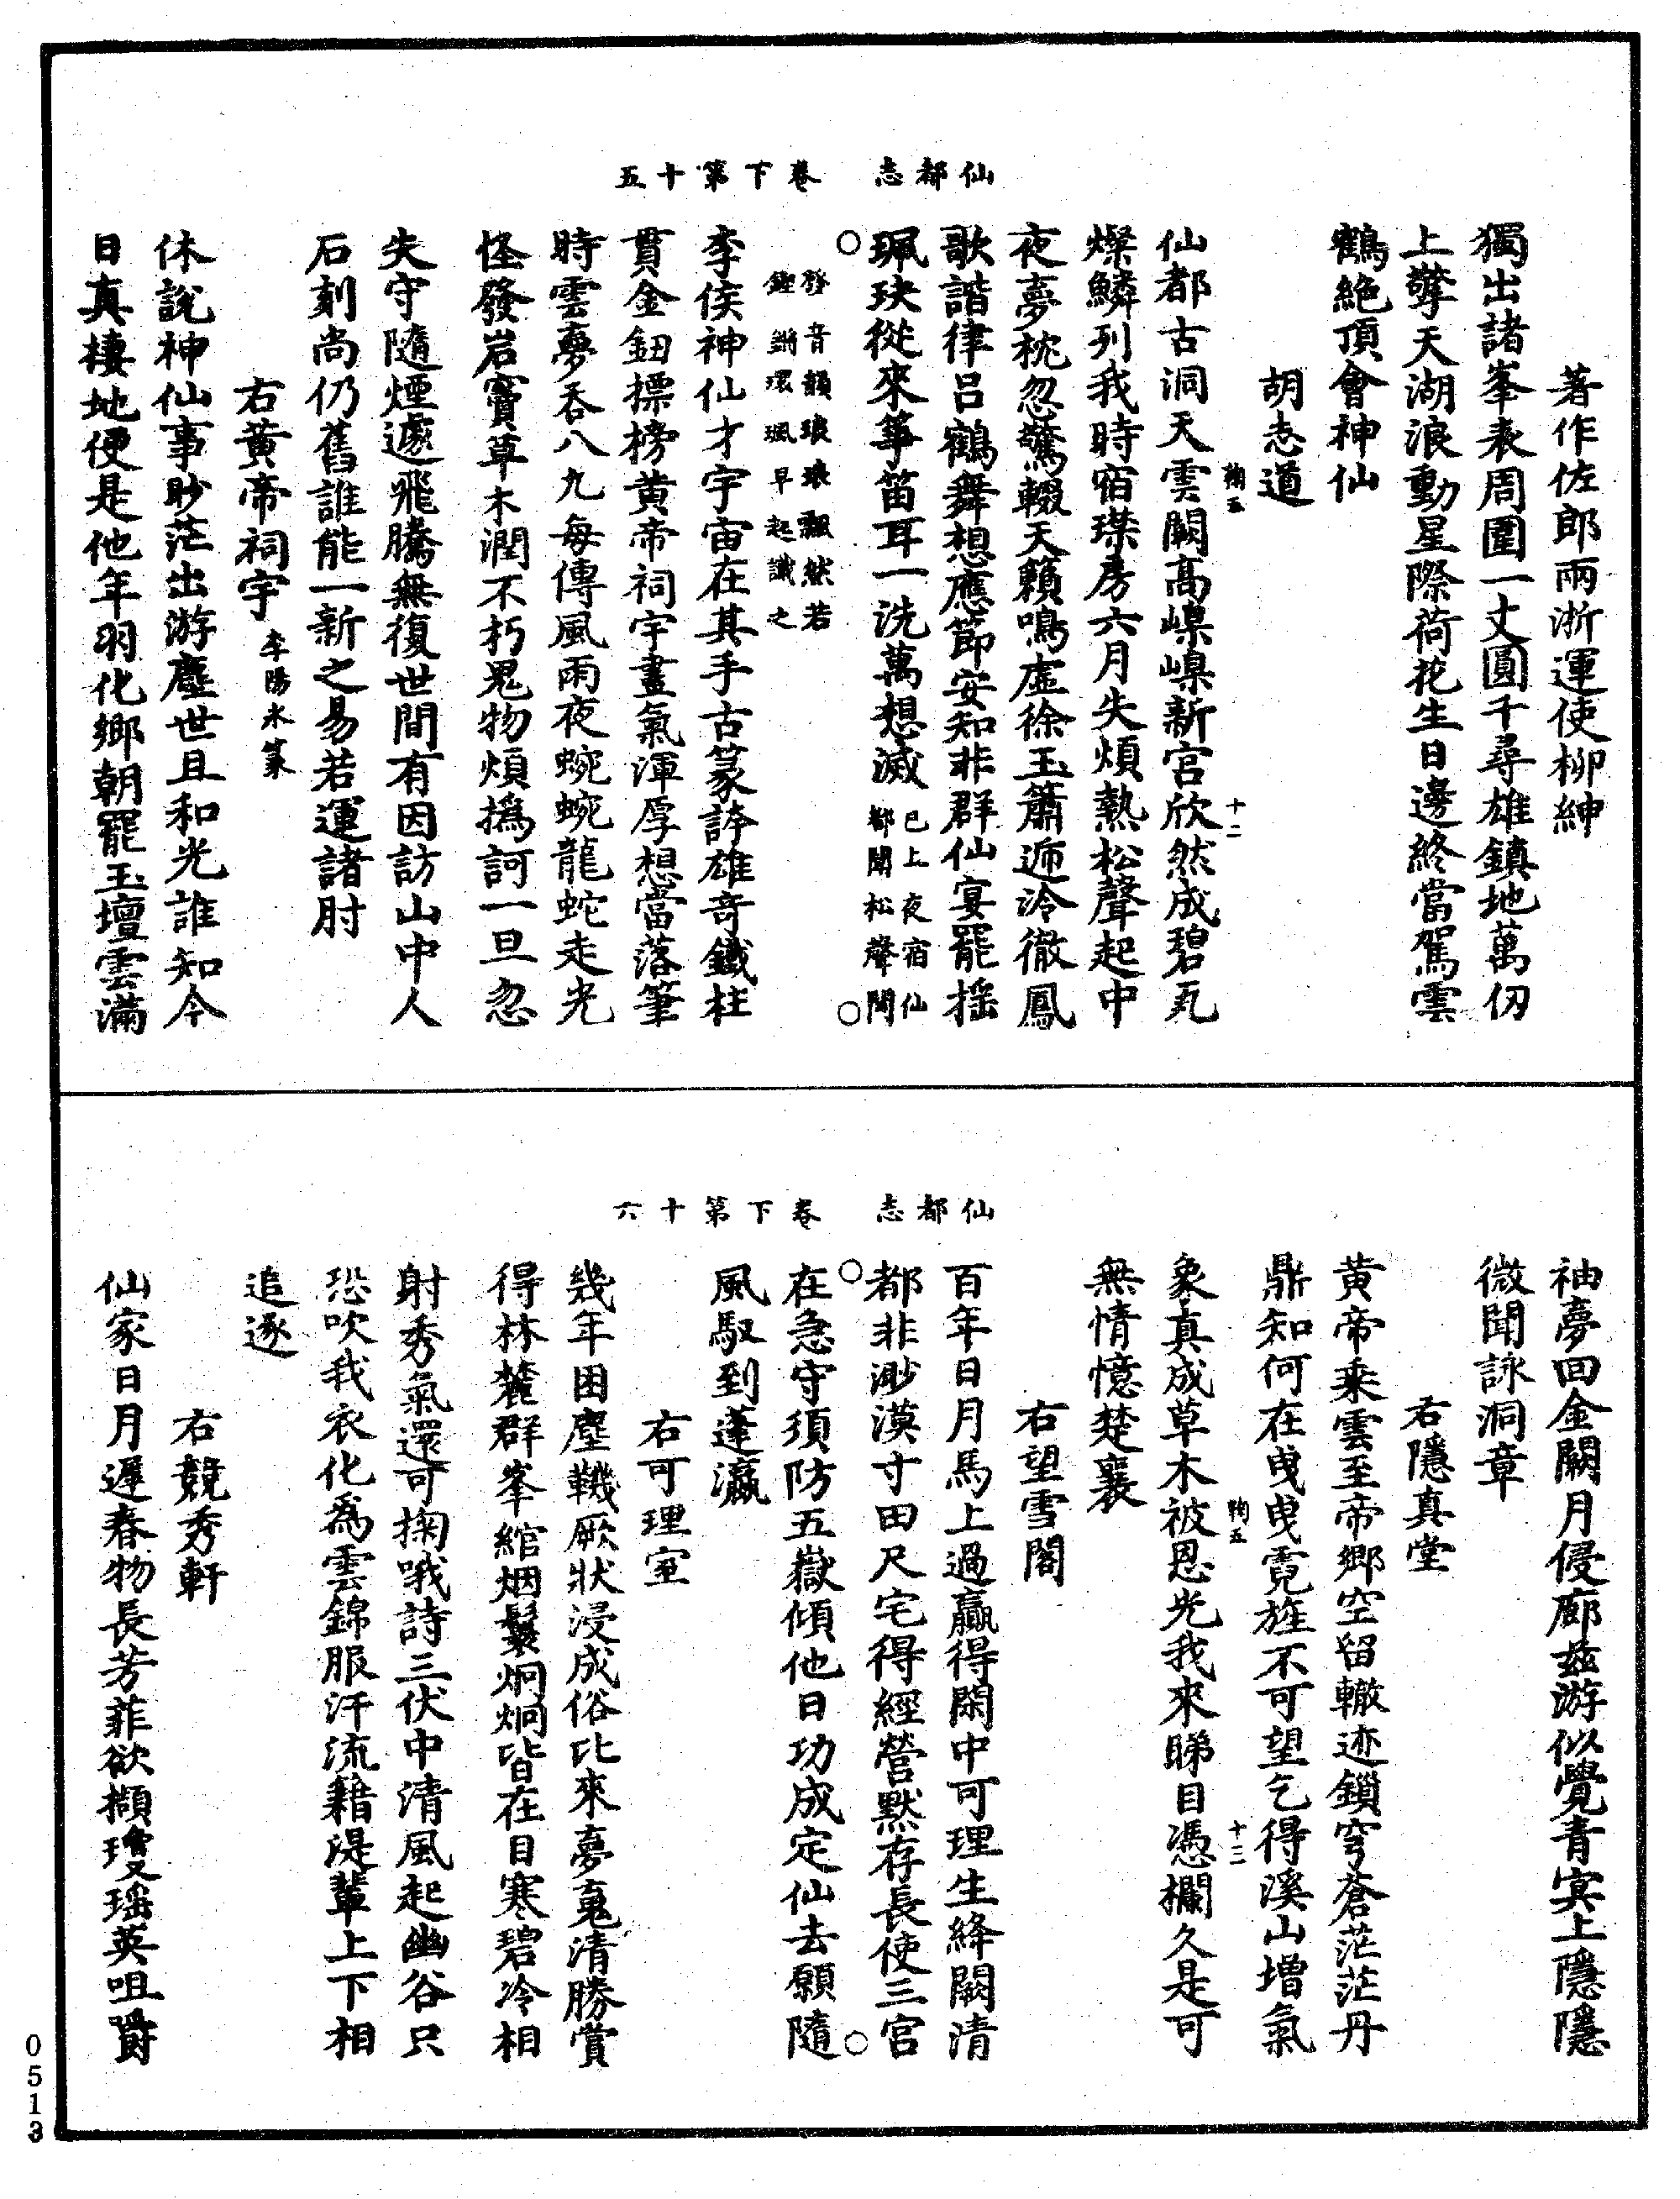 仙都志　卷下第十五
著作佐郎兩浙運使柳紳
獨出諸峯表周圍一丈圓千尋雄鎮地萬仞
上擎天湖浪動星際荷花生日邊終當駕雲
鶴絶頂會神仙
胡志道
鞠五
十二
仙都古洞天雲闕高嵲嵲新宮欣然成碧瓦
燦鱗列我時宿璨房六月失煩熱松聲起中
夜夢枕忽驚輟天籟鳴虛徐玉簫遞泠徹鳳
歌諧律呂鶴舞想應節安知非群仙宴罷揺
珮玦從來箏笛耳一洗萬想滅
已上夜宿仙
都聞松聲間
發音韻琅琅飄然若
鏗鏘環珮早起識之
李侯神仙才宇宙在其手古篆誇雄竒鐵柱
貫金鈕標榜黄帝祠宇畫氣渾厚想當落筆
時雲夢吞八九每傳風雨夜蜿蜿龍蛇走光
怪發岩竇草木潤不朽鬼物煩撝訶一旦忽
失守隨煙遽飛騰無復世間有因訪山中人
石刻尚仍舊誰能一新之易若運諸肘
右黄帝祠宇
李陽氷篆
休說神仙事眇茫出游塵世且和光誰知今
日真棲地便是他年羽化鄉朝罷玉壇雲滿
仙都志　卷下第十六
袖夢回金闕月侵廊兹游似覺青㝠上隱隱
微聞詠洞章
右隱真堂
黄帝乘雲至帝鄉空留轍迹鎖穹蒼茫茫丹
鼎知何在曳曳霓旌不可望乞得溪山增氣
鞠五
十三
象真成草木被恩光我來睇目憑欄久是可
無情憶楚襄
右望雪閣
百年日月馬上過贏得閑中可理生絳闕清
都非渺漠寸田尺宅得經營默存長使三官
在急守須防五嶽傾他日功成定仙去願隨
風馭到蓬瀛
右可理室
幾年困塵鞿厭狀浸成俗比來夢䰟清勝賞
得林麓群峯綰烟鬟炯炯皆在目寒碧冷相
射秀氣還可掬哦詩三伏中清風起幽谷只
恐吹我衣化爲雲錦服汗流籍湜輩上下相
追逐
右競秀軒
仙家日月遲春物長芳菲欲擷瓊瑶英咀嚼
0513